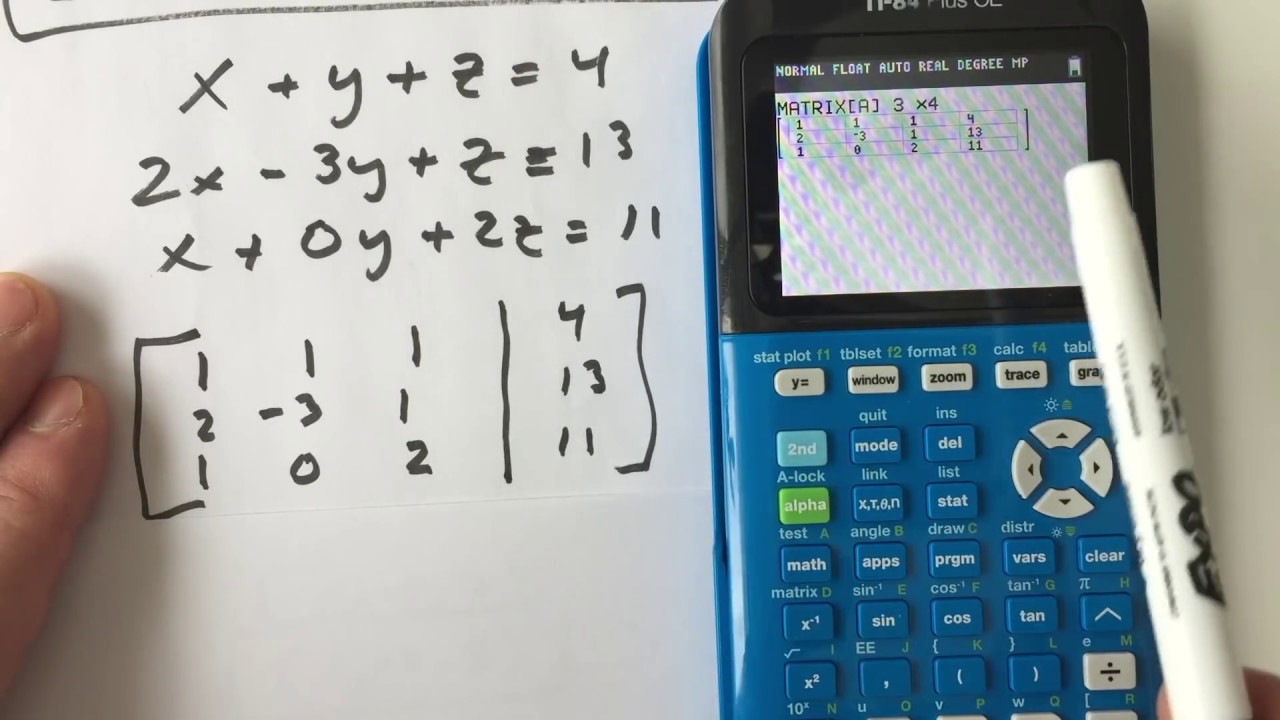 x + y + z = 4
2x - 3y + z = 13
x + 0y + 2z = 11
1 1 1 | 4
2 -3 1 | 13
1 0 2 | 11
TI-84 Plus CE
NORMAL FLOAT AUTO REAL DEGREE MP
MATRIX[A] 3 ×4
1 1 1 4
2 -3 1 13
1 0 2 11
stat plot f1 tblset f2 format f3 calc f4
y= window zoom trace
quit ins
2nd mode del
A-lock link list
alpha X,T,θ,n stat
test A angle B draw C distr
math apps prgm vars clear
matrix D sin⁻¹ E cos⁻¹ F tan⁻¹ G π H
x⁻¹ sin cos tan ^
√ I EE J { K } L e M
x² , ( ) ÷
10ˣ N u O v P w Q [ R